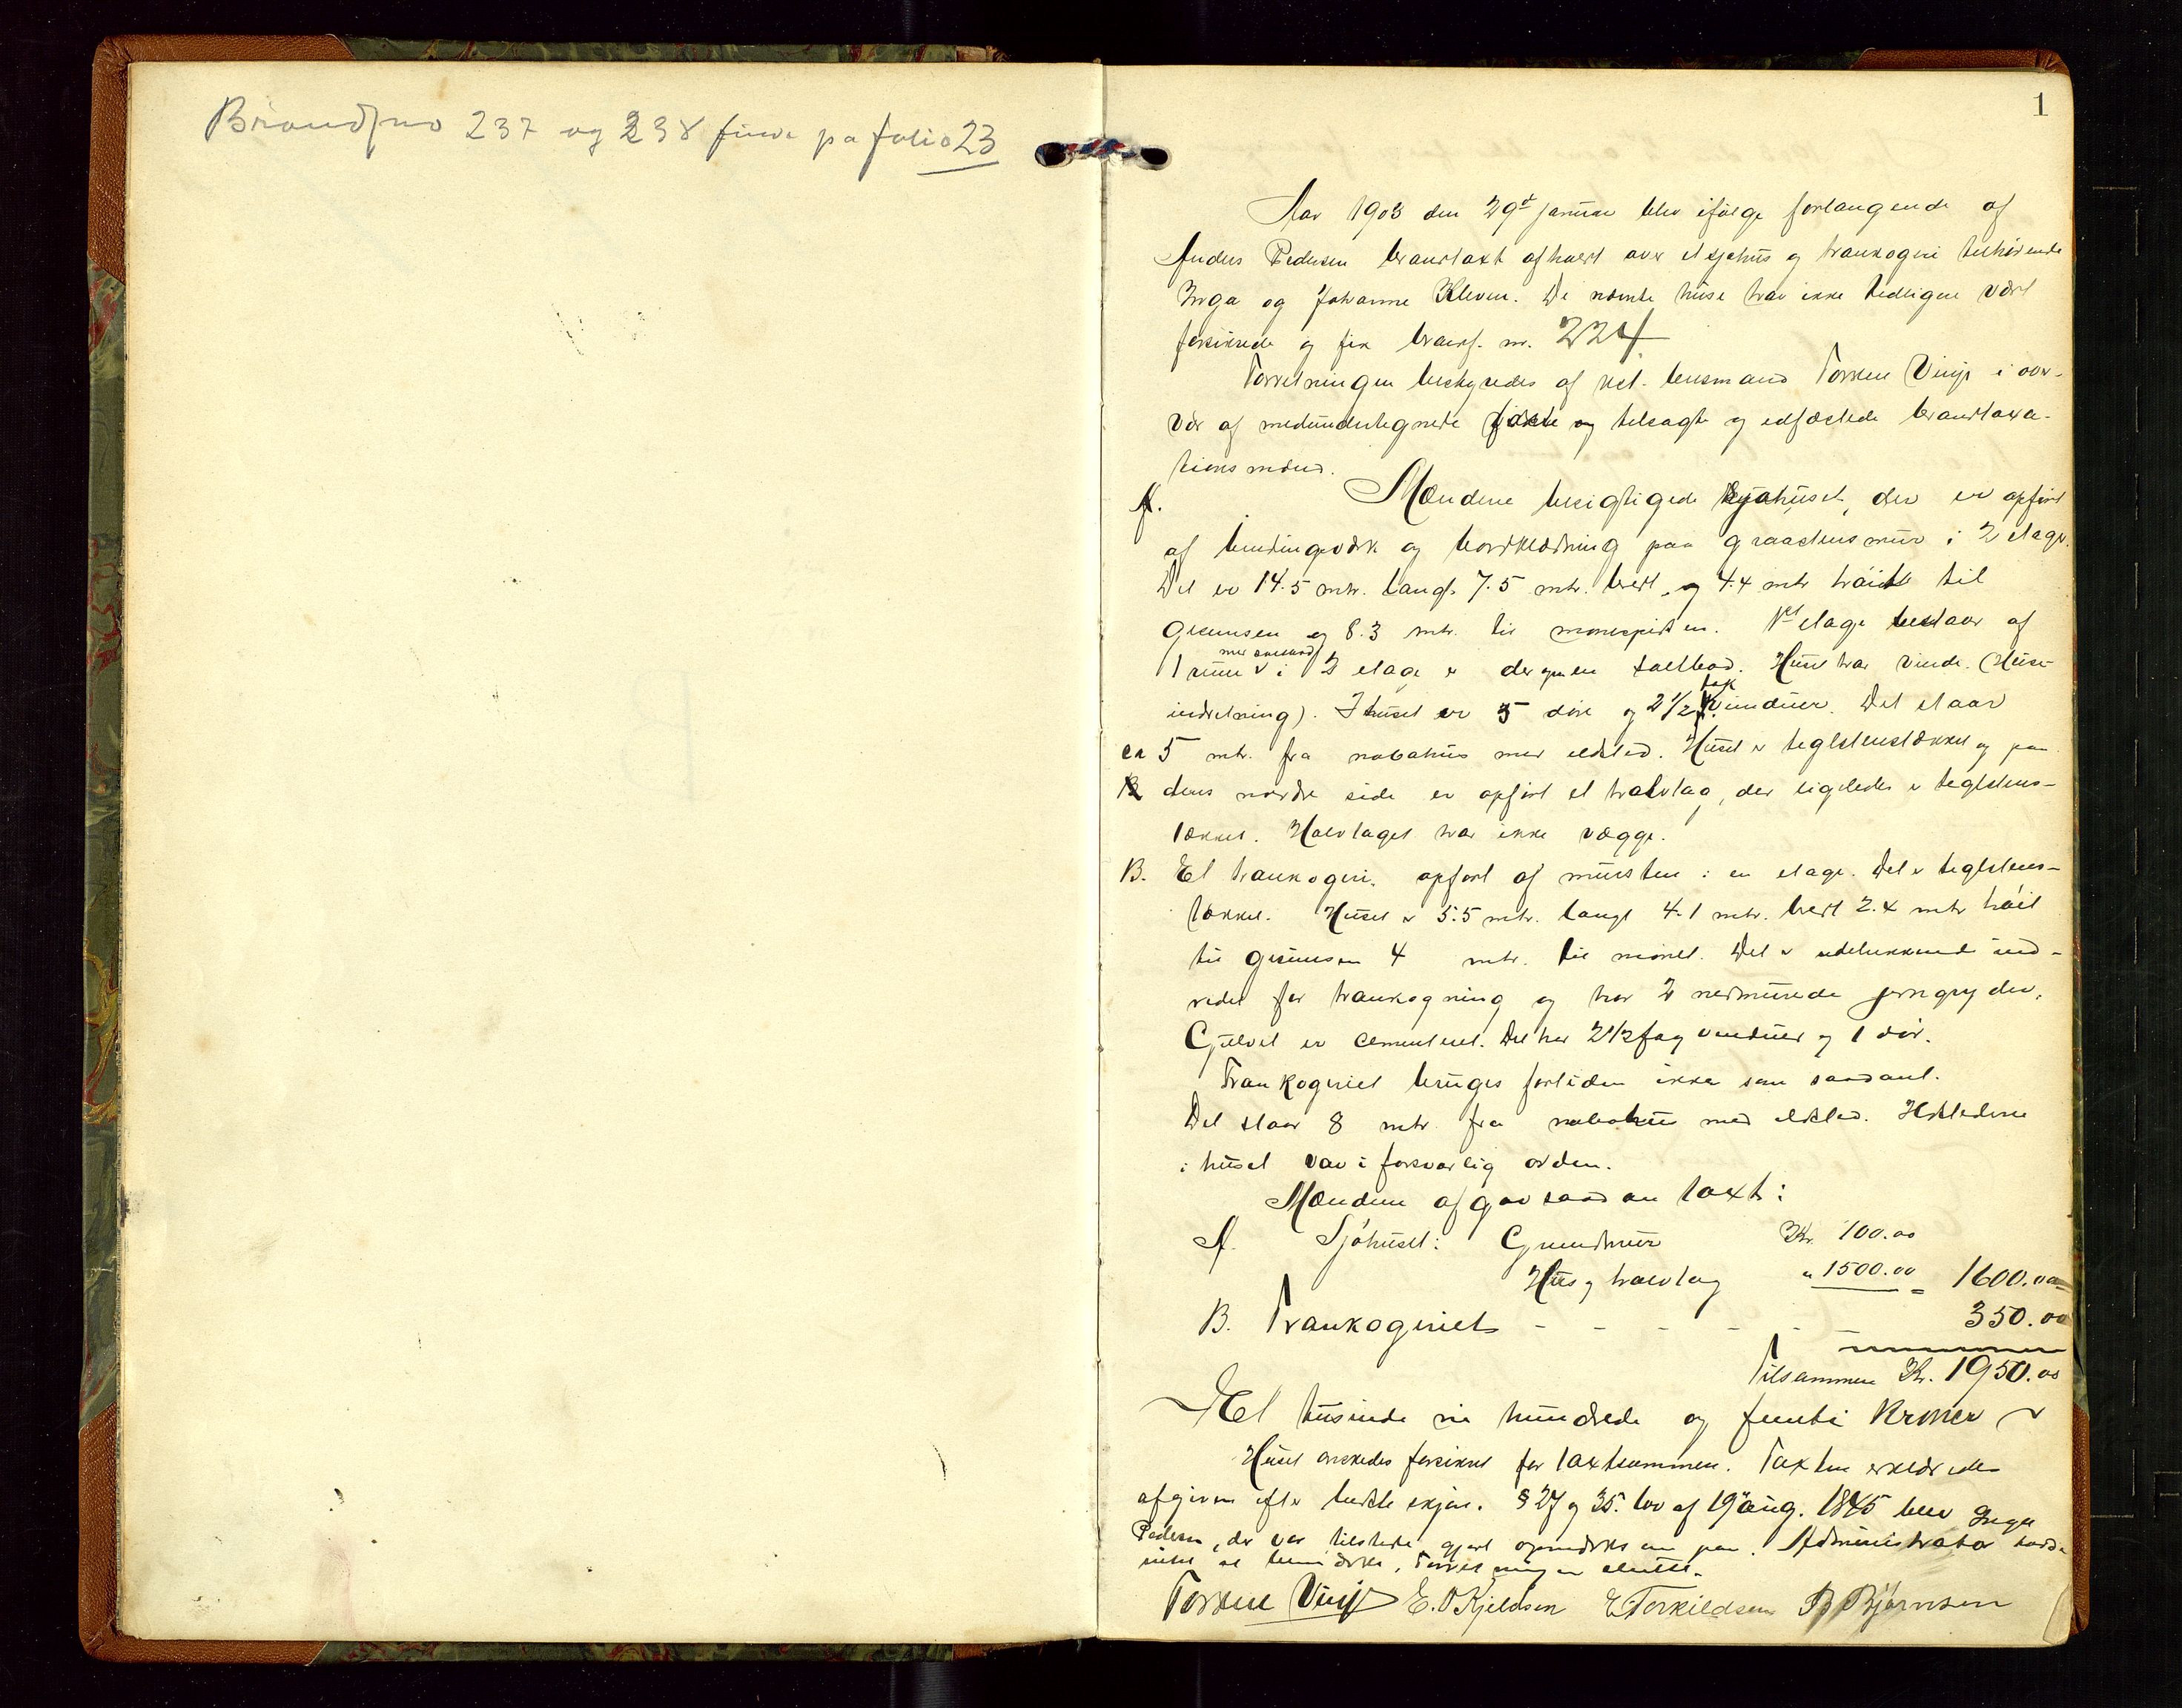 Brandfno 237 og 238 finde pa folio 23
1
Aar 1903 den 29de januar blev ifølge forlangende af
Anders Pedersen brandtaxt afholdt over et sjøhus og trankogeri tilhørende
Inga og Johanne Kleven. De nævnte huse har ikke tidligere vært
forsikrede og fik brandf. nr. 224
Forretningen bestyredes af lensmand Torkel Vinje i over-
vær af medundertegnede og tilsagte og edfæstede brandtaxa-
tionsmænd.
A. Mændene besigtigede sjøhuset, der er opført
af bindingsværk og bordklædning paa graastensmur i 2 etage.
Det er 14.5 mtr. langt 7.5 mtr. bredt og 4.4 mtr høit til
gesimsen og 8.3 mtr. til mønespidsen. 1ste etage bestaar af
1 rum i 2 etage er der en saltbod. Huset har vinde. (Heise-
indretning). I huset er 5 døre og 2 1/2 fag vinduer. Det staar
ca 5 mtr. fra nabohus med ildsted. Huset er teglstenstækket og paa
dens nordre side er opført et halvtag, der ligeledes er teglstens-
tækket. Halvtaget har ikke vægge.
B. Et trankogeri, opført af mursten i en etage. Det er teglstens-
tækket. Huset er 5.5 mtr. langt 4.1 mtr. bredt 2.4 mtr høit
til gesimsen 4 mtr. til mønet. Det er udelukkende ind-
redet for trankogning og har 2 nedmurede jerngryder,
Gulvet er cementeret. Det har 2 1/2 fag vinduer og 1 dør.
Trankogeriet bruges fortiden ikke som saadant.
Det staar 8 mtr fra nabohus med ildsted. Ildstederne
i huset var i forsvarlig orden.
Mændene afgav saadan taxt:
A. Sjøhuset: Grundmur Kr. 100.00
Hus og halvtag " 1500.00 = 1600.00
B. Trankogeriet - - - - - - 350.00
Tilsammen Kr. 1950.00
Et tusinde ni hundrede og femti Kroner
Huset ønskedes forsikret for taxtsummen. Taxten erklæredes
afgiven efter bedste skjøn. § 27 og 35 lov af 19 aug. 1845 blev Inga
Pedersen, der var tilstede, gjort opmærksom paa. Administrator havde
intet at bemærke. Forretningen sluttet.
Torkel Vinje E. O Kjeldsen E. Torkildsen B Bjørnsen